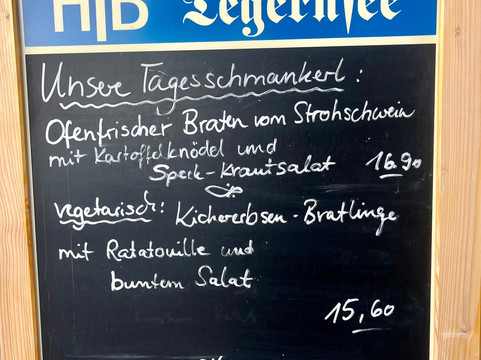 HB Tegernsee
Unsere Tagesschmankerl:
Ofenfrischer Braten vom Strohschwein
mit Kartoffelknödel und
Speck-Krautsalat 16.90
vegetarisch: Kichererbsen-Bratlinge
mit Ratatouille und
buntem Salat
15,60